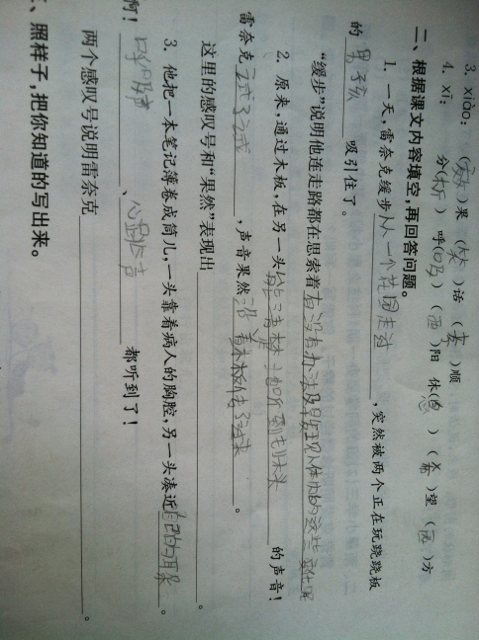 3. xiào:(效)果 (笑)话 (孝)顺
4. xī: 分(析) 呼(吸) (西)阳 休(息) (希)望 (西)方
二、根据课文内容填空,再回答问题。
1. 一天,雷奈克缓步从一个花园走过,突然被两个正在玩跷跷板
的男孩吸引住了。
“缓步”说明他连走路都在思索着有没有办法及早发现人体内的这些
2. 原来,通过木板,在另一头能清楚地听到的声音!
雷奈克试了试,声音果然沿着木板传了过来。
这里的感叹号和“果然”表现出。
3. 他把一本笔记簿卷成筒儿,一头靠着病人的胸腔,另一头凑近自己的耳朵。
啊!呼吸声、心跳声都听到了!
两个感叹号说明雷奈克。
三、照样子,把你知道的写出来。